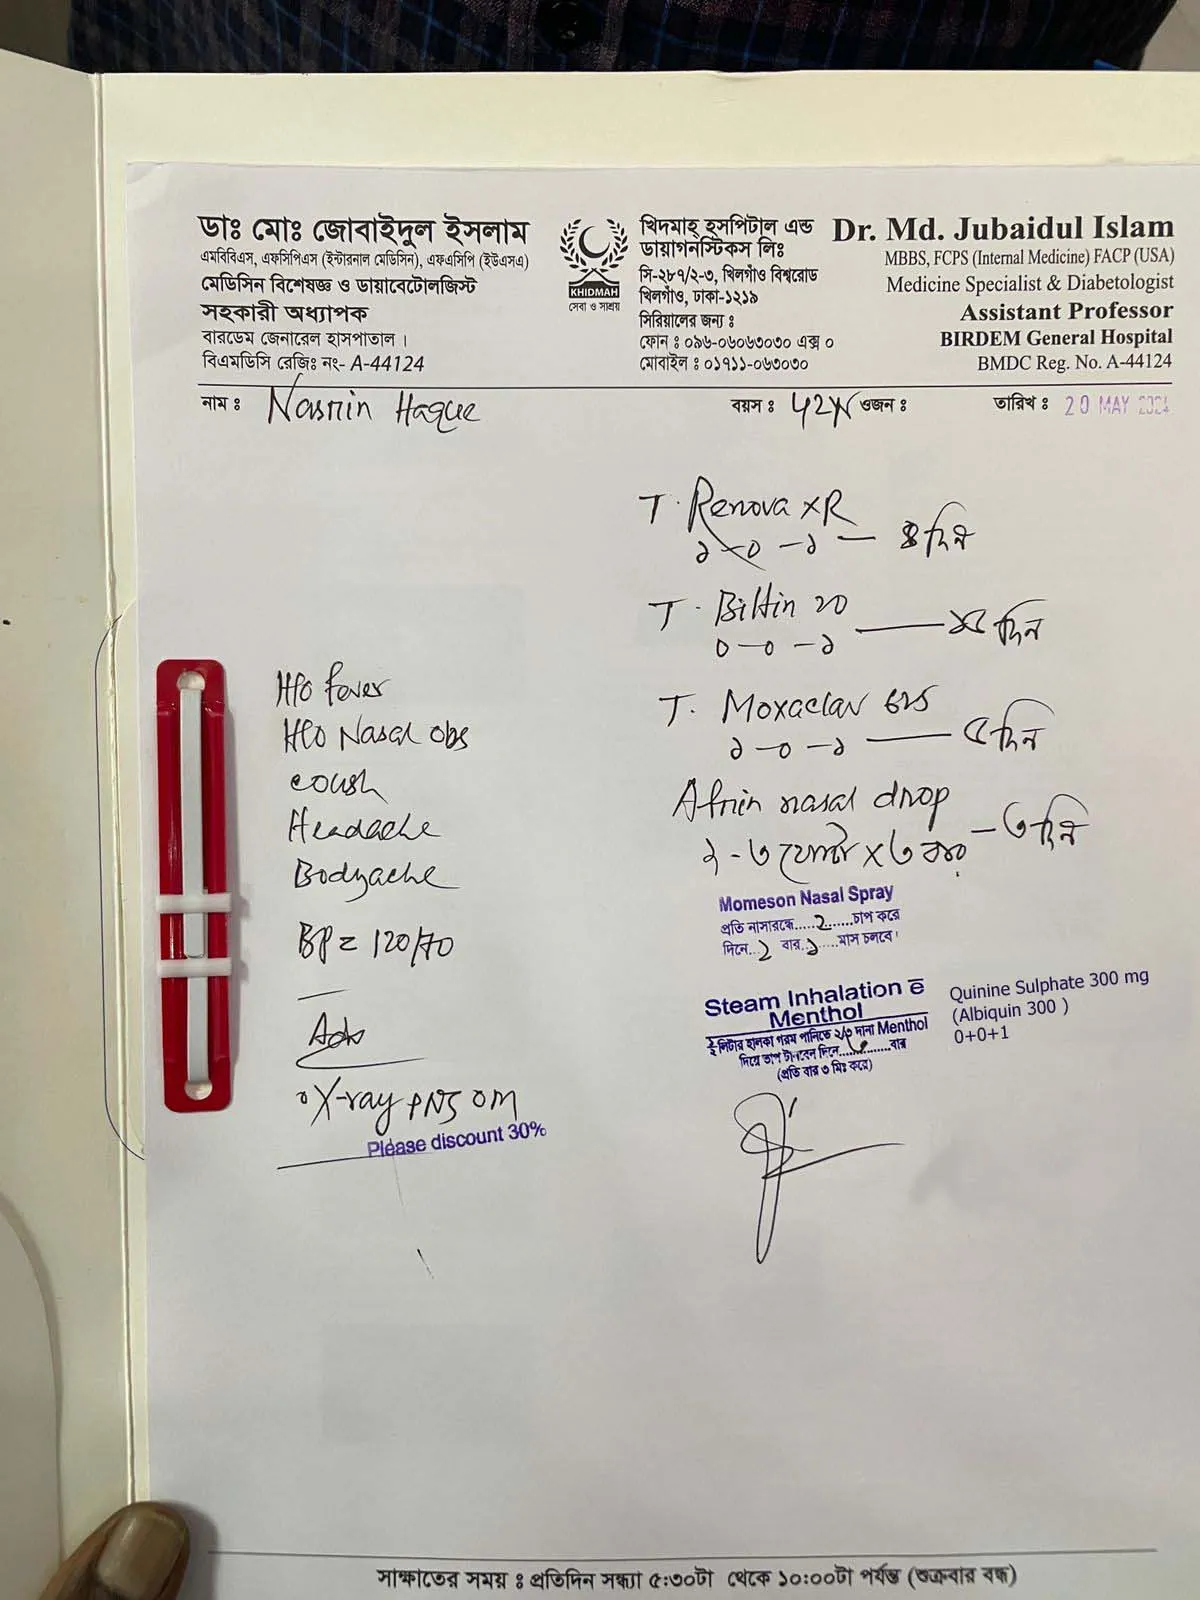 ডাঃ মোঃ জোবাইদুল ইসলাম
এমবিবিএস, এফসিপিএস (ইন্টারনাল মেডিসিন), এফএসিপি (ইউএসএ)
মেডিসিন বিশেষজ্ঞ ও ডায়াবেটোলজিস্ট
সহকারী অধ্যাপক
বারডেম জেনারেল হাসপাতাল ।
বিএমডিসি রেজিঃ নং- A-44124
KHIDMAH
সেবা ও সাশ্রয়
খিদমাহ্ হসপিটাল এন্ড
ডায়াগনস্টিকস লিঃ
সি-২৮৭/২-৩, খিলগাঁও বিশ্বরোড
খিলগাঁও, ঢাকা-১২১৯
সিরিয়ালের জন্য ঃ
ফোন ঃ ০৯৬-০৬০৬৩০৩০ এক্স ০
মোবাইল ঃ ০১৭১১-০৬৩০৩০
Dr. Md. Jubaidul Islam
MBBS, FCPS (Internal Medicine) FACP (USA)
Medicine Specialist & Diabetologist
Assistant Professor
BIRDEM General Hospital
BMDC Reg. No. A-44124
নাম ঃ Nasrin Haque বয়স ঃ 42y ওজন ঃ তারিখ ঃ 20 MAY 2024
H/O fever
H/O Nasal obs
cough
Headache
Bodyache
BP = 120/70
Adv
X-ray PNS OM
Please discount 30%
T. Renova XR
১-০-১ — দিন
T. Biltin 20
০-০-১ — ১৫ দিন
T. Moxaclav 625
১-০-১ — ৫ দিন
Afrin nasal drop
২-৩ ফোটা X ৩ বার — ৩ দিন
Momeson Nasal Spray
প্রতি নাসারন্ধ্রে.....2......চাপ করে
দিনে...2 বার..১....মাস চলবে।
Steam Inhalation c̄
Menthol
½ লিটার হালকা গরম পানিতে ২/৩ দানা Menthol
দিয়ে ভাপ টানবেন দিনে..............বার
(প্রতি বার ৩ মিঃ করে)
Quinine Sulphate 300 mg
(Albiquin 300 )
0+0+1
সাক্ষাতের সময় ঃ প্রতিদিন সন্ধ্যা ৫:৩০টা থেকে ১০:০০টা পর্যন্ত (শুক্রবার বন্ধ)